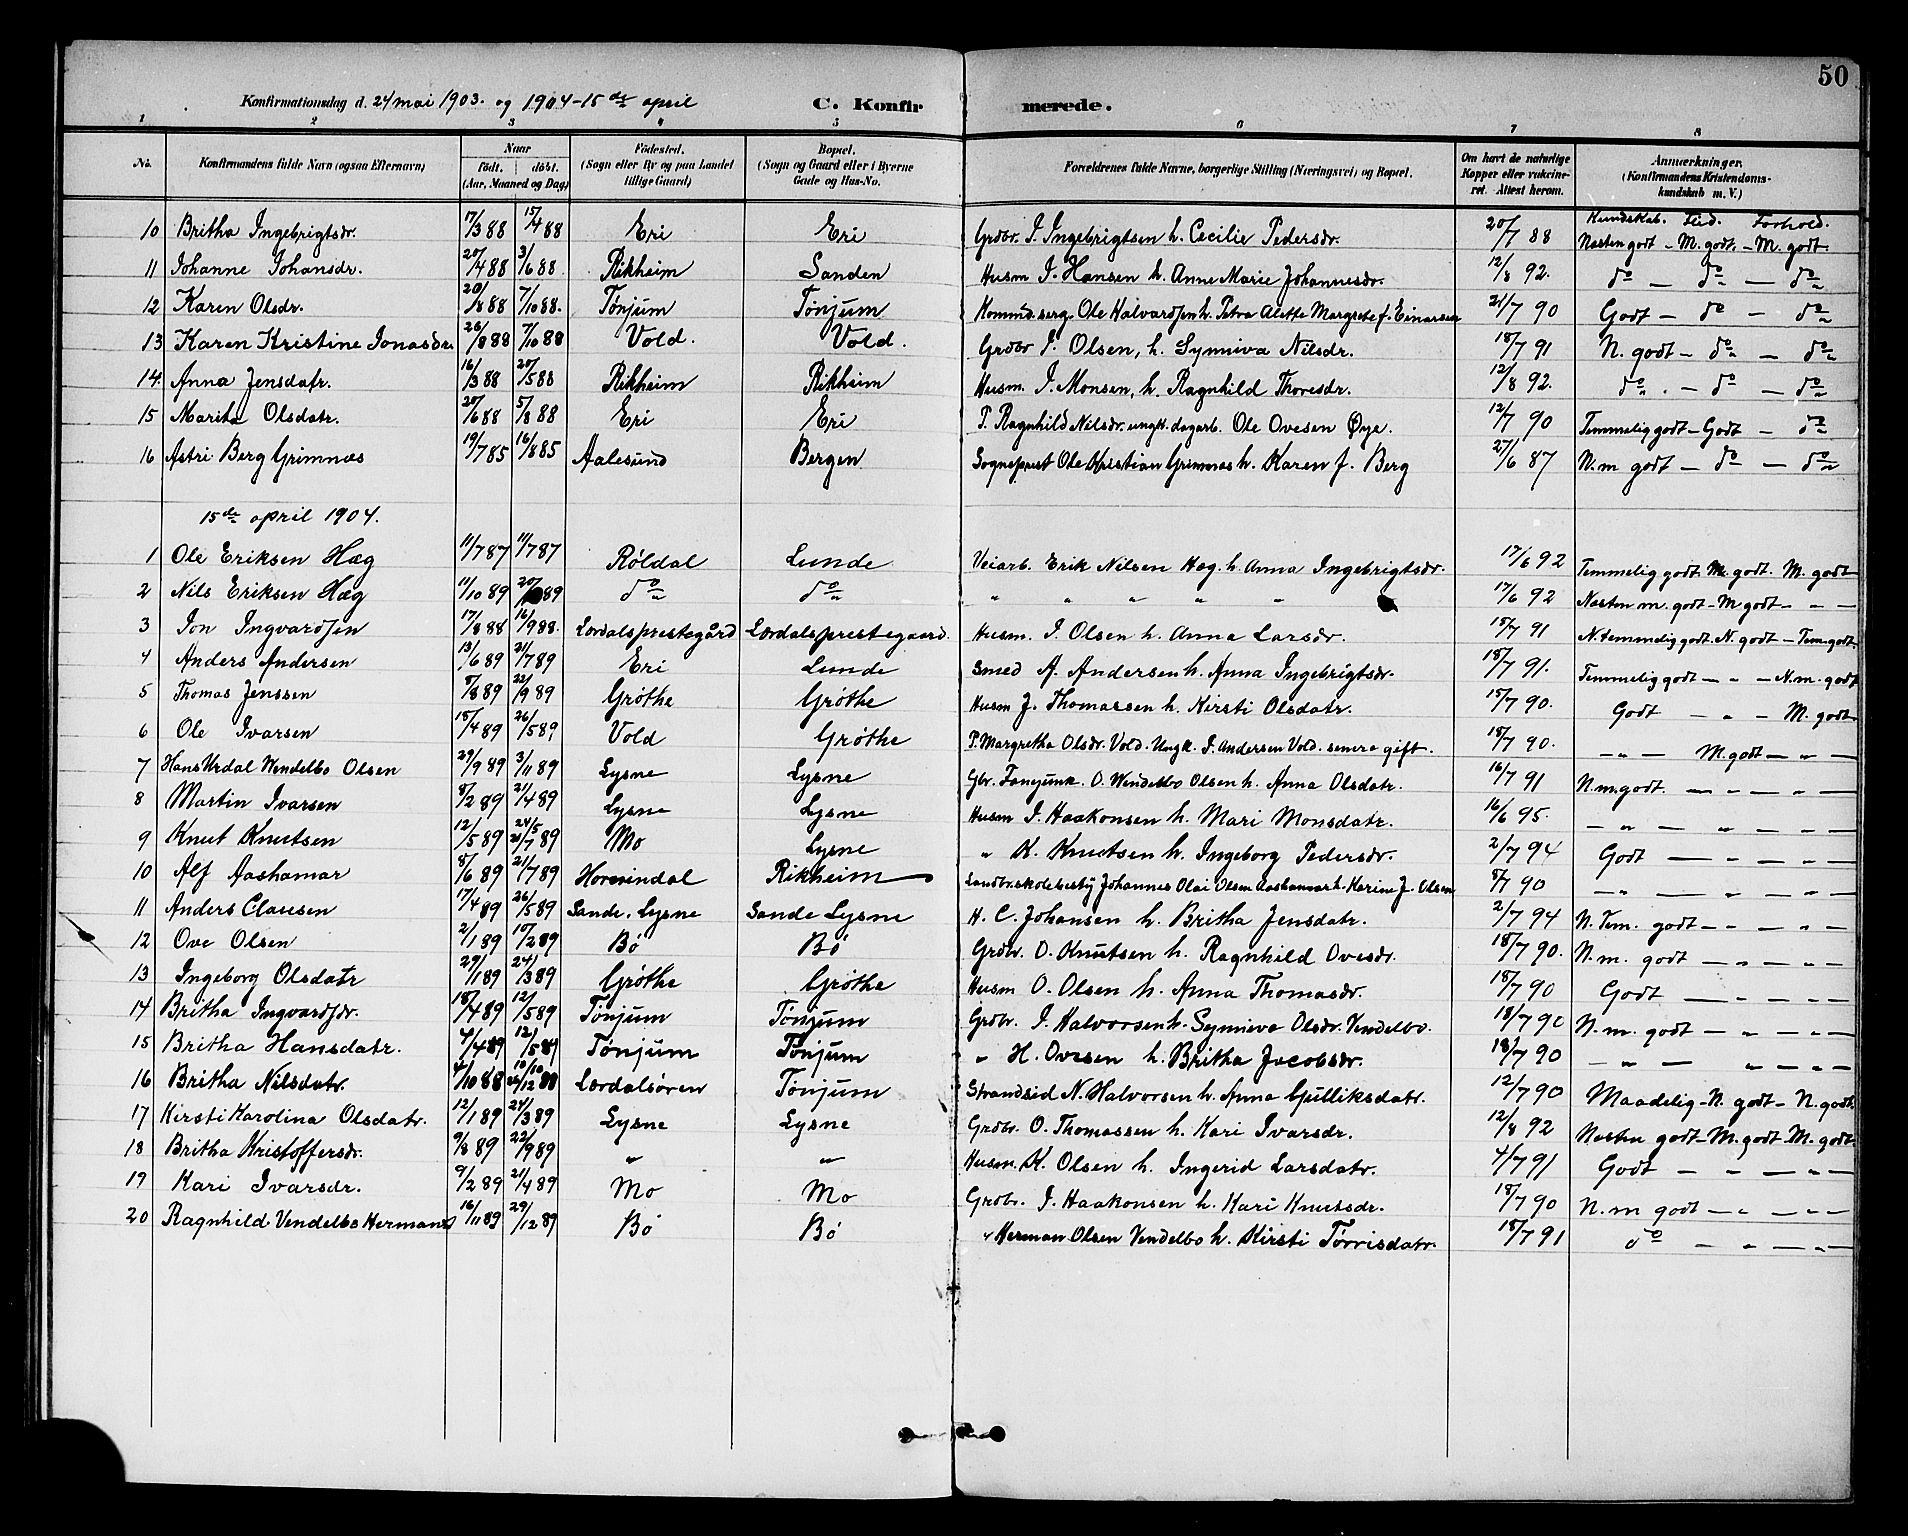 50
Konfirmationsdag d. 24 mai 1903. og 1904-15de april C. Konfirmerede.
1 2 3 4 5 6 7 8
No. Konfirmandens fulde Navn (ogsaa Efternavn) Naar født. døbt. (Aar, Maaned og Dag) Fødested. (Sogn eller By og paa Landet tillige Gaard) Bopæl. (Sogn og Gaard eller i Byerne Gade og Hus-No. Forældrenes fulde Navne, borgerlige Stilling (Næringsvei) og Bopæl. Om havt de naturlige Kopper eller vakcineret. Attest herom. Anmærkninger. (Konfirmandens Kristendomskundskab m. V.)
Kundskab. Flid. Forhold.
10 Britha Ingebrigtsdr. 17/3 88 15/4 88 Eri Eri Grdbr. I. Ingebrigtsen h. Cecilie Pedersdr. 20/7 88 Næsten godt - M. godt. - M. godt.
11 Johanne Johansdr. 20/4 88 3/6 88. Rikheim Sanden Husm I. Hansen h. Anne Marie Johannesdr. 12/8 92. do - do - do
12 Karen Olsdr. 20/8 88 7/10 88. Tønjum Tønjum Ole Halvardsen h. Petra Alette Margrete f. Einarsen 21/7 90 Godt - do - do
13 Karen Kristine Jonasdr. 26/8 88 7/10 88 Vold. Vold. Grdbr I. Olsen, h. Synniva Nilsdr. 18/7 91 N. godt - do - do
14. Anna Jensdatr. 16/3 88 20/5 88 Rikheim Rikheim Husm. I. Monsen, h. Ragnhild Thoresdr. 12/8 92. do. - do - do
15 Marita Olsdatr. 20/6 88 5/8 88 Eri Eri P. Ragnhild Nilsdr. ungk. dagarb. Ole Ovesen Øye. 12/7 90 Temmelig godt - Godt - do
16 Astri Berg Grimnæs 19/7 85 16/8 85 Aalesund Bergen Sogneprest Ole Kristian Grimnæs h. Karen f. Berg 27/6 87 N. m godt - do - do
15de april 1904.
1 Ole Eriksen Hæg 11/7 87 11/7 87 Røldal Lunde Veiarb. Erik Nilsen Hæg. h. Anna Ingebrigtsdr. 17/6 92 Temmelig godt. M. godt. M. godt
2 Nils Eriksen Hæg 11/10 89 20/10 89 do do " " " " " 17/6 92 Næsten m. godt - M godt - " -
3 Jon Ingvardsen 17/8 88 16/9 88. Lærdalsprestegård Lærdalsprestegaard Husm. I. Olsen h. Anna Larsdr. 15/7 91 N. temmelig godt. N. godt - Tem. godt.
4 Anders Andersen 13/6 89 21/7 89 Eri Lunde Smed A. Andersen h. Anna Ingebrigtsdr. 18/7 91. Temmelig godt - " - N. m. godt
5 Thomas Jenssen 5/8 89 22/9 89 Grøthe Grøthe Husm J. Thomassen h. Kirsti Olsdatr. 15/7 90. Godt - " - M. godt
6 Ole Ivarsen 15/4 89 26/5 89 Vold Grøthe P. Margretha Olsdr. Vold. Ungk. I. Andersen Vold. senere gift. 18/7 90. - " - M. godt - " -
7 Hans Uedal Wendelbo Olsen 29/9 89 3/11 89 Lysne Lysne O. Wendelbo Olsen h. Anna Olsdatr. 16/7 91 N. m. godt. - " - " -
8 Martin Ivarsen 8/2 89 21/4 89 Lysne Lysne Husm I. Haakonsen h. Mari Monsdatr. 16/6 95. - " - " - " -
9 Knut Knutsen 12/5 89 24/5 21/7 89 Mo Lysne " K. Knutsen h. Ingeborg Pedersdr. 2/7 94 Godt - " - " -
10 Alf Aashamar 8/6 89 21/7 89 Hornindal Rikheim Landbr. skolebesty Johannes Olai Olsen Aashamar h. Karine J. Olsen 5/7 90 - " - " - " -
11 Anders Clausen 17/4 89 26/5 89 Sande, Lysne Sande Lysne H. C. Johansen h. Britha Jensdatr. 2/7 94 N. Tem. godt - " - " -
12 Ove Olsen 2/1 89 10/2 89 Bø Bø Grdbr. O. Knutsen h. Ragnhild Ovesdr. 18/7 90. N. m. godt - " - " -
13 Ingeborg Olsdatr 29/1 89 24/3 89 Grøthe Grøthe Husm O. Olsen h. Anna Thomasdr. 18/7 90 Godt - " - " -
14 Britha Ingvardsdr. 18/4 89 12/5 89 Tønjum Tønjum Grdbr. I. Halvorsen h. Synnieva Olsdr. Vendelbo. 18/7 90 N. m. godt - " - " -
15 Britha Hansdatr. 4/4 89 12/5 89 Tønjum Tønjum " H. Ovesen h. Britha Jacobsdr. 18/7 90 - " - " - " -
16 Britha Nilsdatr. 4/10 88 10/10 26/12 88 Lærdalsøren Tønjum Strandsid N. Halvorsen h. Anna Gulliksdatr. 12/7 90 Maadelig - N. godt - N. godt.
17 Kirsti Karolina Olsdatr. 12/1 89 24/3 89 Lysne Lysne Grdbr. O. Thomassen h. Kari Ivarsdr. 12/8 92 Næsten godt - M. godt - M. godt
18 Britha Kristoffersdr. 9/8 89 22/9 89 " " Husm. K. Olsen h. Ingerid Larsdatr. 4/7 91 Godt - " - " -
19 Kari Ivarsdr. 9/2 89 21/4 89 Mo Mo Grdbr. I. Haakonsen h. Kari Knutsdr. 18/7 90 N. m godt - " - " -
20 Ragnhild Vendelbo Hermans 16/11 89 29/12 89 Bø Bø " Herman Olsen Vendelbo h. Kirsti Tørrisdatr. 15/7 91 do - " - " -